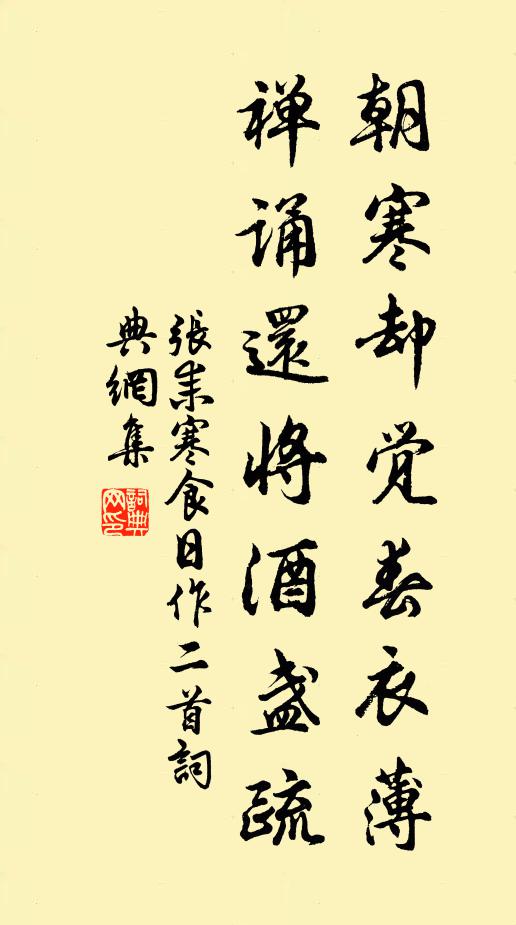 朝寒却觉春衣薄
禅诵還将酒盏疏
張耒寒食日作二首詞
典網集
詞典網印